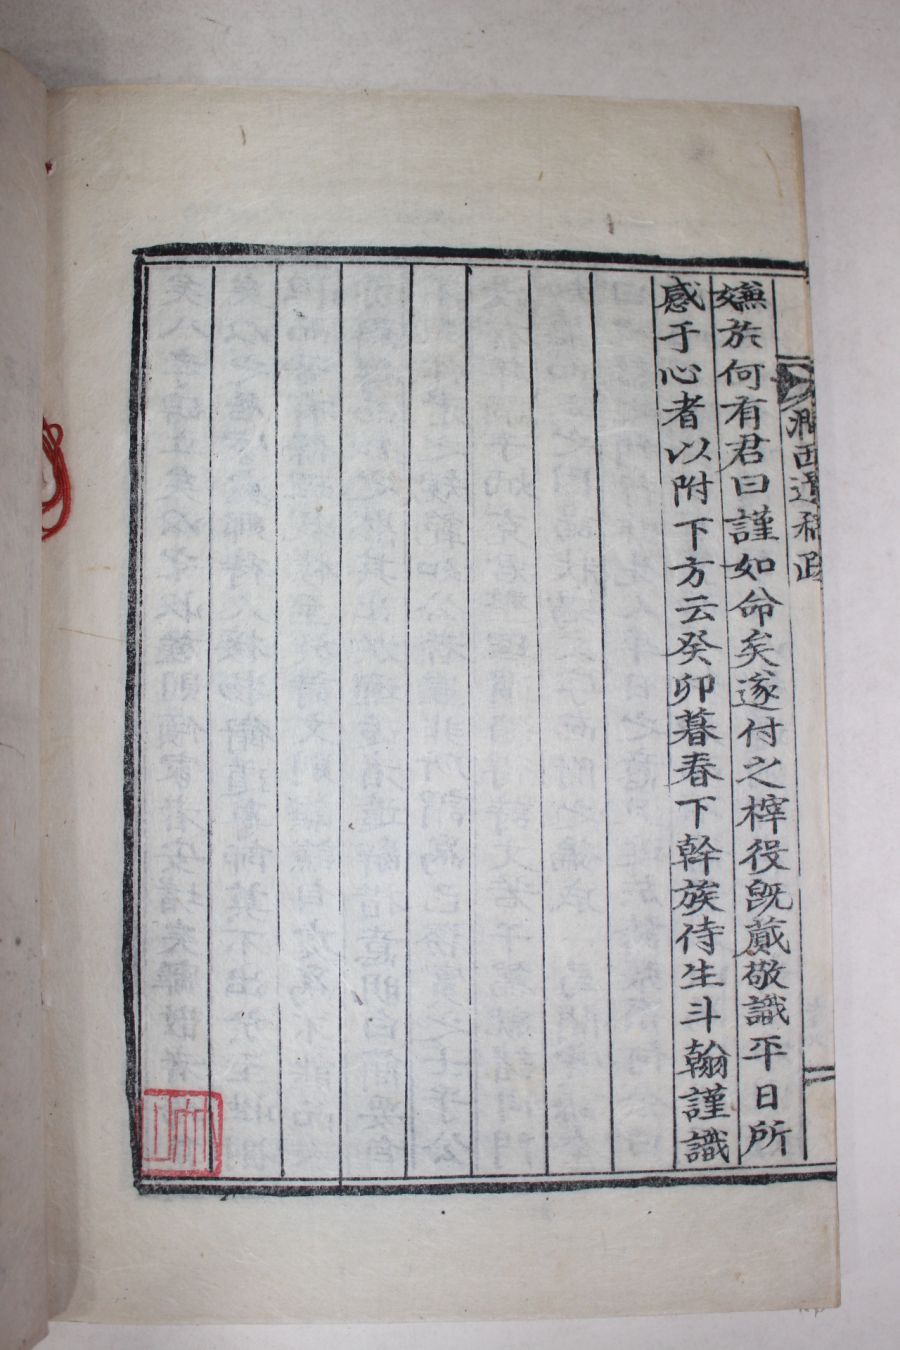 澗西遺稿跋
嫌於何有君曰謹如命矣遂付之梓役旣蕆敬識平日所
感于心者以附下方云癸卯暮春下幹族侍生斗翰謹識